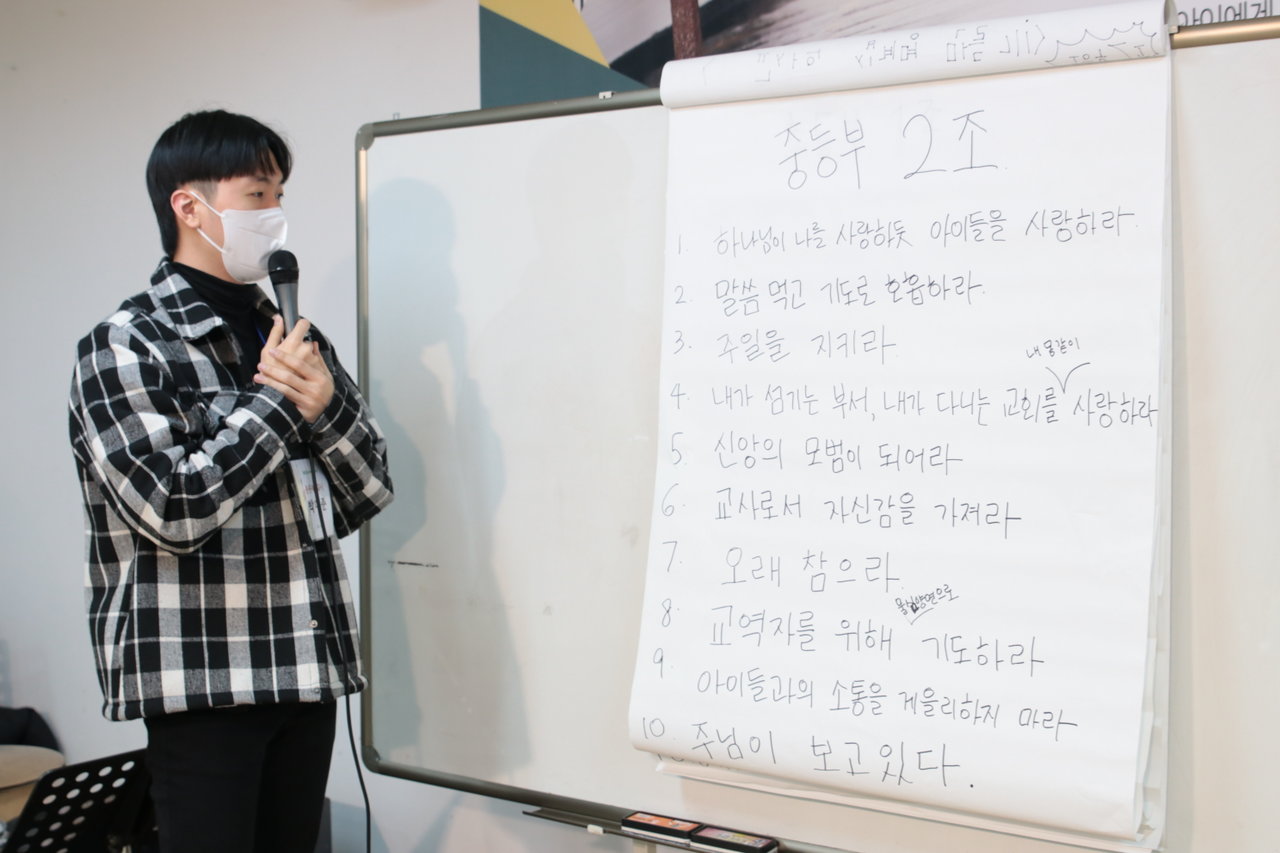 아이에게
중등부 2조
1. 하나님이 나를 사랑하듯 아이들을 사랑하라.
2. 말씀 먹고 기도로 호흡하라.
3. 주일을 지키라
내 몸같이
4. 내가 섬기는 부서, 내가 다니는 교회를 사랑하라
5. 신앙의 모범이 되어라
6. 교사로서 자신감을 가져라
7. 오래 참으라
물심양면으로
8. 교역자를 위해 기도하라
9. 아이들과의 소통을 게을리하지 마라
10. 주님이 보고있다.